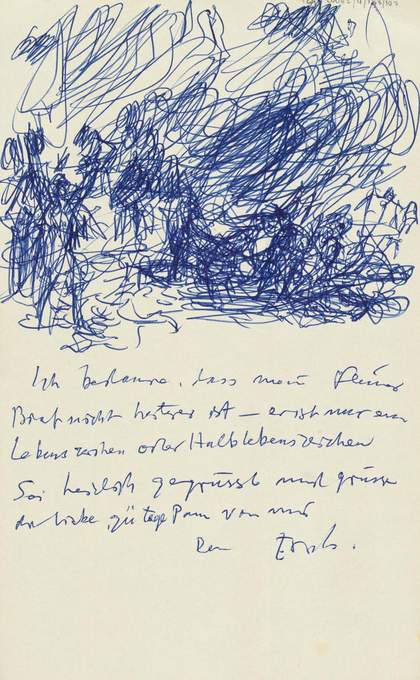 Ich bedaure, dass mein kleiner
Brief nicht heiterer ist – er ist nur ein
Lebenszeichen oder Halblebenszeichen
Sei herzlich gegrüsst und grüsse
die liebe, gütige von mir
Dein